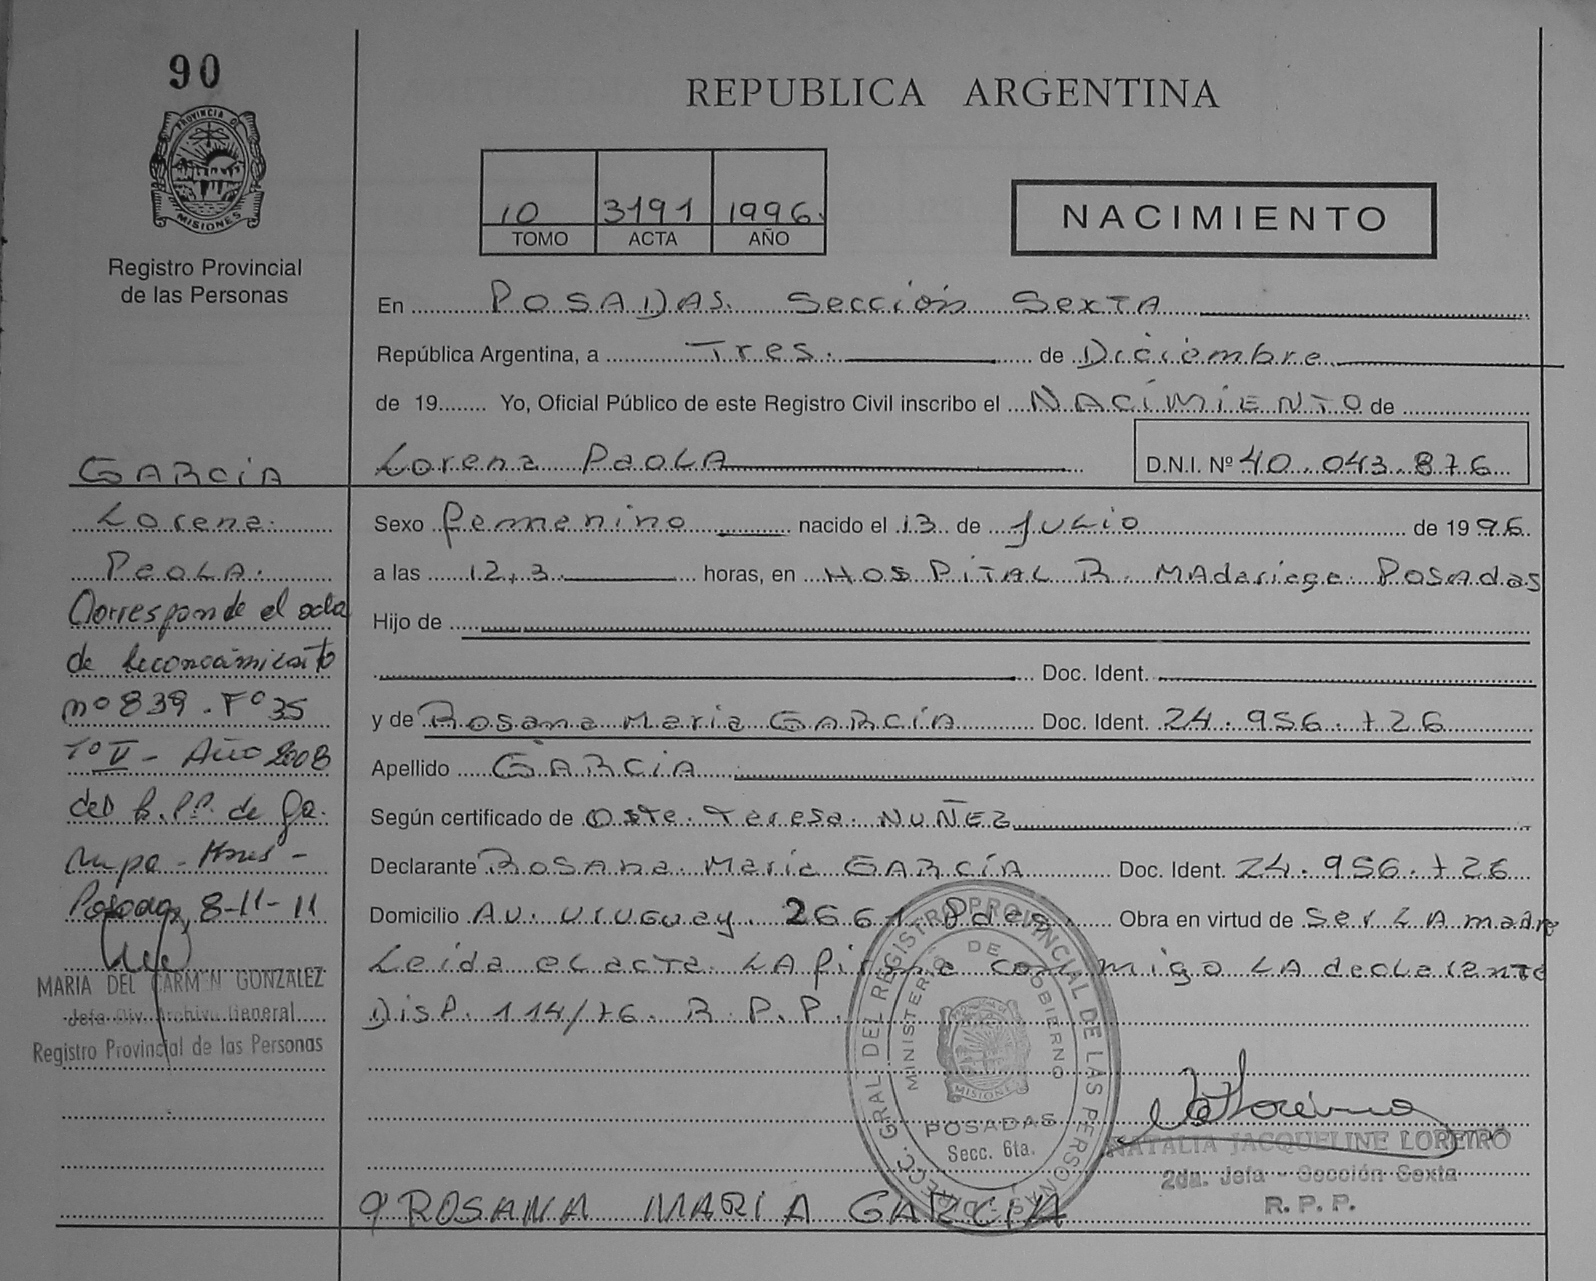 90
PROVINCIA DE
MISIONES
Registro Provincial
de las Personas
REPUBLICA ARGENTINA
10 3191 1996.
TOMO ACTA AÑO
NACIMIENTO
En POSADAS. Sección Sexta
República Argentina, a Tres. de Diciembre
de 19........ Yo, Oficial Público de este Registro Civil inscribo el NACIMIENTO de
Lorena PaoLA
D.N.I. Nº 40.043.876
GARCIA
Lorena
PaoLA.
Corresponde el acta
de Reconocimiento
nº 839 - Fº 35
Tº V - Año 2008
del R.P.P. de
- Mnes -
Posadas, 8-11-11
MARIA DEL CARMEN GONZALEZ
Jefa Div. Archivo General
Registro Provincial de las Personas
Sexo femenino nacido el 13 de JuLio de 1996
a las 12,3 horas, en HOSPITAL R. MAdariaga Posadas
Hijo de
Doc. Ident.
y de Rosana Maria GARCÍA Doc. Ident. 24.956.726
Apellido GARCIA
Según certificado de Oste. Teresa NUÑEZ
Declarante Rosana Maria GARCÍA Doc. Ident. 24.956.726
Domicilio AV. Uruguay. 2661 Pdas. Obra en virtud de Ser LA madre
Leida el acta LA firma conmigo LA declarante
Disp. 114/76. R.P.P.
DIRECC. GRAL DEL REGISTRO PROVINCIAL DE LAS PERSONAS
MINISTERIO DE GOBIERNO
MISIONES
POSADAS
Secc. 6ta.
NATALIA JACQUELINE LOREIRO
2da. Jefa - Sección Sexta
R.P.P.
ROSANA MARIA GARCIA